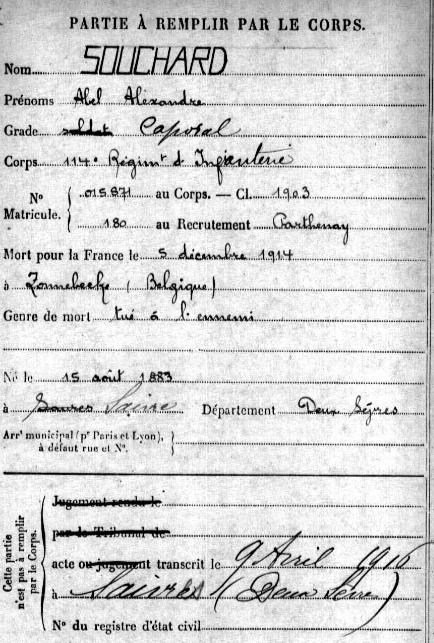 PARTIE À REMPLIR PAR LE CORPS.
Nom SOUCHARD
Prénoms Abel Alexandre
Grade soldat Caporal
Corps 114e Régimt d'Infanterie
No Matricule. 015871 au Corps. — Cl. 1903
180 au Recrutement Parthenay
Mort pour la France le 5 décembre 1914
à Zonnebecke (Belgique)
Genre de mort tué à l'ennemi
Né le 15 août 1883
à Département Deux Sèvres
Arrt municipal (pr Paris et Lyon), à défaut rue et No.
Cette partie n'est pas à remplir par le Corps.
Jugement rendu le
par le Tribunal de
acte ou jugement transcrit le 9 Avril 1916
à Saivres (Deux Sèvres)
No du registre d'état civil